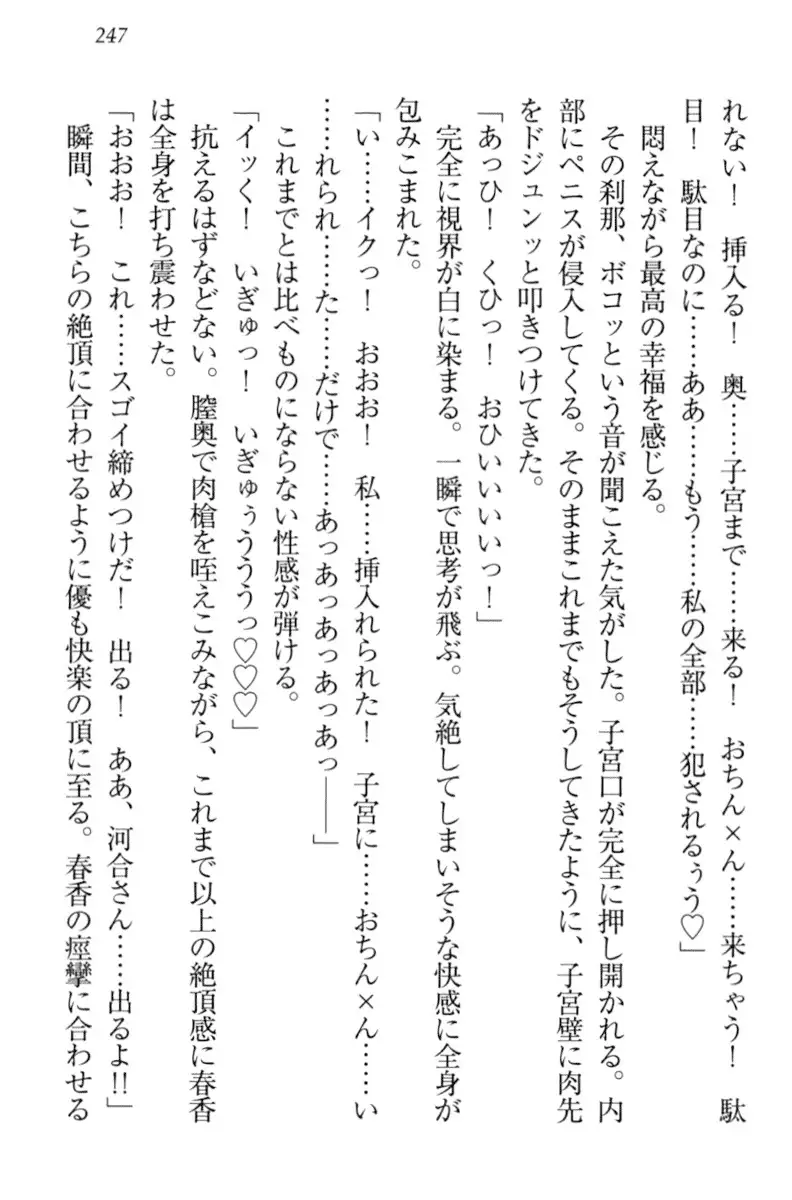 247
れない！　挿入る！　奥……子宮まで……来る！　おちん×ん……来ちゃう！　駄
目！　駄目なのに……ああ……もう……私の全部……犯されるぅう♡」
悶えながら最高の幸福を感じる。
その刹那、ボコッという音が聞こえた気がした。子宮口が完全に押し開かれる。内
部にペニスが侵入してくる。そのままこれまでもそうしてきたように、子宮壁に肉先
をドジュンッと叩きつけてきた。
「あっひ！　くひっ！　おひいいいいっ！」
完全に視界が白に染まる。一瞬で思考が飛ぶ。気絶してしまいそうな快感に全身が
包みこまれた。
「い……イクっ！　おおお！　私……挿入れられた！　子宮に……おちん×ん……い
……れられ……た……だけで……あっあっあっあっあっ――」
これまでとは比べものにならない性感が弾ける。
「イッく！　いぎゅっ！　いぎゅぅうううっ♡♡♡」
抗えるはずなどない。膣奥で肉槍を咥えこみながら、これまで以上の絶頂感に春香
は全身を打ち震わせた。
「おおお！　これ……スゴイ締めつけだ！　出る！　ああ、河合さん……出るよ!!」
瞬間、こちらの絶頂に合わせるように優も快楽の頂に至る。春香の痙攣に合わせる